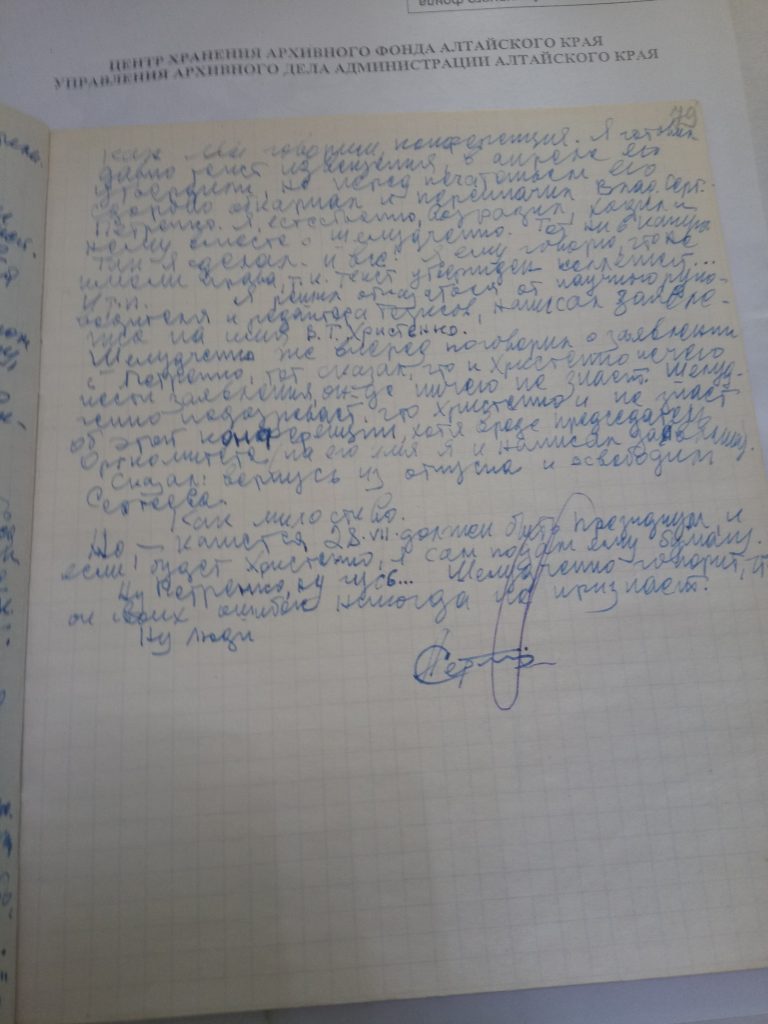 ЦЕНТР ХРАНЕНИЯ АРХИВНОГО ФОНДА АЛТАЙСКОГО КРАЯ
УПРАВЛЕНИЯ АРХИВНОГО ДЕЛА АДМИНИСТРАЦИИ АЛТАЙСКОГО КРАЯ
79
Как мы говорили, конференция. Я готовил
давно текст извещения, в апреле его
утвердили, но перед печатаньем его
здорово обкарнал и переиначил Влад. Серг.
Петренко. Я, естественно, возразил, ходили к
нему вместе с Шелудченко.
Так я сделал и вас! Я ему говорю, что не
имели права, т.к. текст утвержден
И т.п. Я решил отказаться от научного руко-
водителя и редактора тезисов, написал заявле-
ние на имя В.Т. Христенко.
Шелудченко же вперед поговорил о заявлении
с Петренко, тот сказал, что к Христенко нечего
нести заявления, он-де ничего не знает. Шелуд-
ченко подозревает, что Христенко и не знает
об этой конференции, хотя вроде председатель
Оргкомитета (на его имя я и написал
Сказал: вернусь из отпуска и освободим
Сергеева.
Как милостиво.
Но — кажется 28.VII должен быть президиум, и
если будет Христенко, я сам подам ему бумагу.
Ну Петренко, ну гусь... Шелудченко говорит,
он своих ошибок никогда не признает.
Ну люди